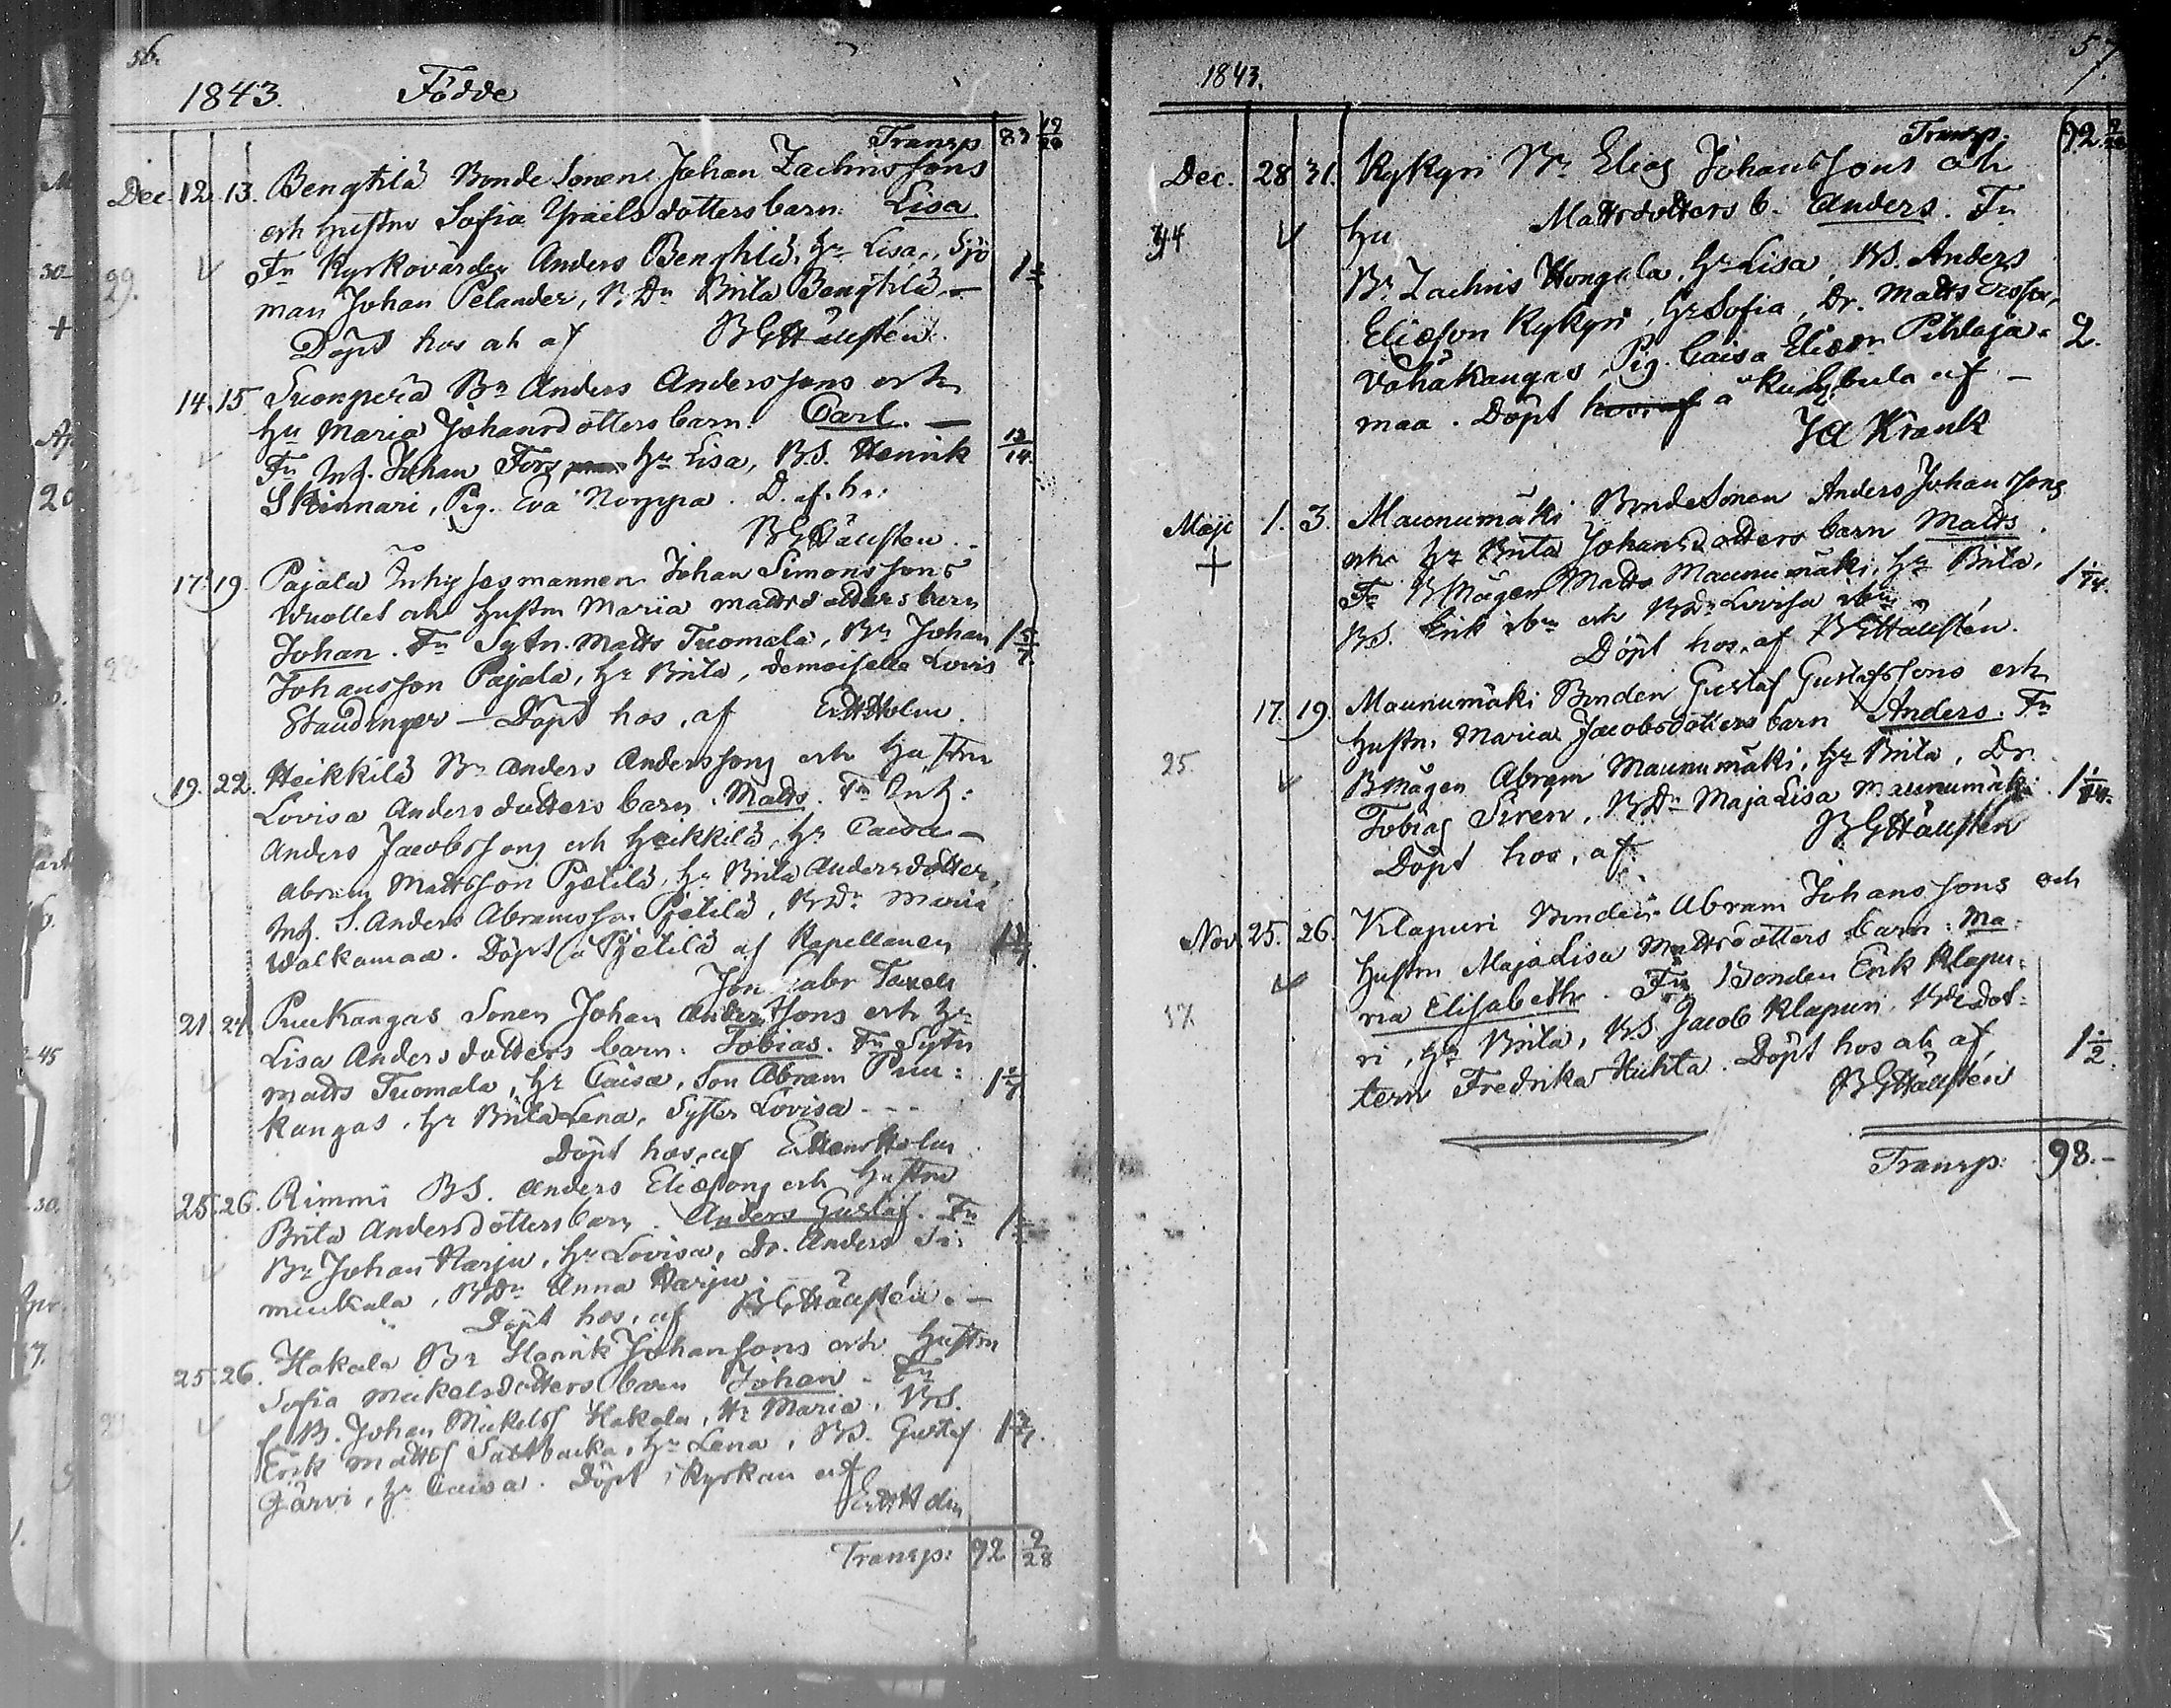 56.
1843. Födde
Transp. 83 19/28
Dec. 12. 13. Bengtilä Bonde Sonen Johan Zachrissons
och Hustru Sofia Israelsdotters barn: Lisa
Fr Kyrkovärden Anders Bengtilä, Hr Lisa, Sjö
29. man Johan Pelander, B.Dr Brita Bengtilä —
Döpt hos ah af BGHällstén.
14. 15. Suonperä Br Anders Anderssons och
Hu Maria Johansdotters barn Carl. —
Fr Inh. Johan Fors Hr Lisa, B.S. Henrik 13/14.
Skinnari, Pig. Eva Norppa. D. af. h.:
BGHällsten.
17. 19. Pajala Inhysesmannen Johan Simonssons
Wuollet och Hustru Maria Mattsdotters barn
Johan. Fr Sytn. Matts Tuomala, Br Johan
Johansson Pajala, Hr Brita, Demoiselle Lovis
Staudinger — Döpt hos, af Holm.
19. 22. Heikkilä Br Anders Anderssons och Hustru
Lovisa Andersdotters barn: Matts. Fr Inh:
Anders Jacobssons och Heikkilä, Hr Caisa —
Abram Mattsson Pjetilä, Hr Brita Andersdotter,
Inh. S. Anders Abramsson Pjetilä, B.Dr Maria
Walkamaa. Döpt i Pjetilä af Kapellanen
21. 24. Puukangas Sonen Johan Anderssons och Hr
Lisa Andersdotters barn: Tobias. Fr Sytn
Matts Tuomala, Hr Caisa, Son Abram Puu:
kangas, Hr Brita Lena, Syster Lovisa - - -
Döpt hos, af Holm
25. 26. Rimmi BS. Anders Eliæsons och Hustru
Brita Andersdotters barn. Anders Gustaf. Fr
Br Johan Harju, Hr Lovisa, Dr. Anders Si:
muukala, B.Dr Anna Harju.
Döpt hos, af BGHällstén. —
25. 26. Hakala Br Henrik Johanssons och Hustru
Sofia Mickelsdotters barn Johan - Fr
f B. Johan Mickelss Hakala, Hr Maria, BS.
Erik Mattss Saltbacka, Hr Lena, BS. Gustaf
Järvi, Hr Caisa. Döpt i Kyrkan af
Holm
Transp: 92 9/28
57
1843.
Transp: 92 9/28
Dec. 28 31. Kykyri Br Elias Johanssons och
44 Hu Mattsdotters b. Anders. Fr
Br Zachris Hongala, Hr Lisa, BS. Anders
Eliæson Kykyri, Hr Sofia, Dr. Matts Ersson
Vähäkangas, Pig. Caisa Eliædr Pihlaja- 2.
maa. Döpt af —
JA Krank
Maji 1. 3. Maunumäki BondeSonen Anders Johanssons
+ och Hr Brita Johansdotters barn Matts.
Fr BMågen Matts Maunumäki, Hr Brita,
BS. Erik ibm och B.Dr Lovisa ibm
Döpt hos, af BGHällstén.
17. 19. Maunumäki Bonden Gustaf Gustafssons och
Hustr. Maria Jacobsdotters barn Anders. Fr
25. Bmågen Abram Maunumäki, Hr Brita, Dr.
Tobias Sirén, B.Dr Maja Lisa Maunumäki
Döpt hos, af: BGHällstén
Nov. 25. 26. Klapuri Bonden Abram Johanssons och
Hustru Maja Lisa Mattsdotters barn: Ma-
ria Elisabeth. Fr Bonden Erik Klapu:
ri, Hr Brita, BS Jacob Klapuri, Bdedot-
tern Fredrika Huhta. Döpt hos ah af 1 1/2.
BGHällstén
Transp: 98. -